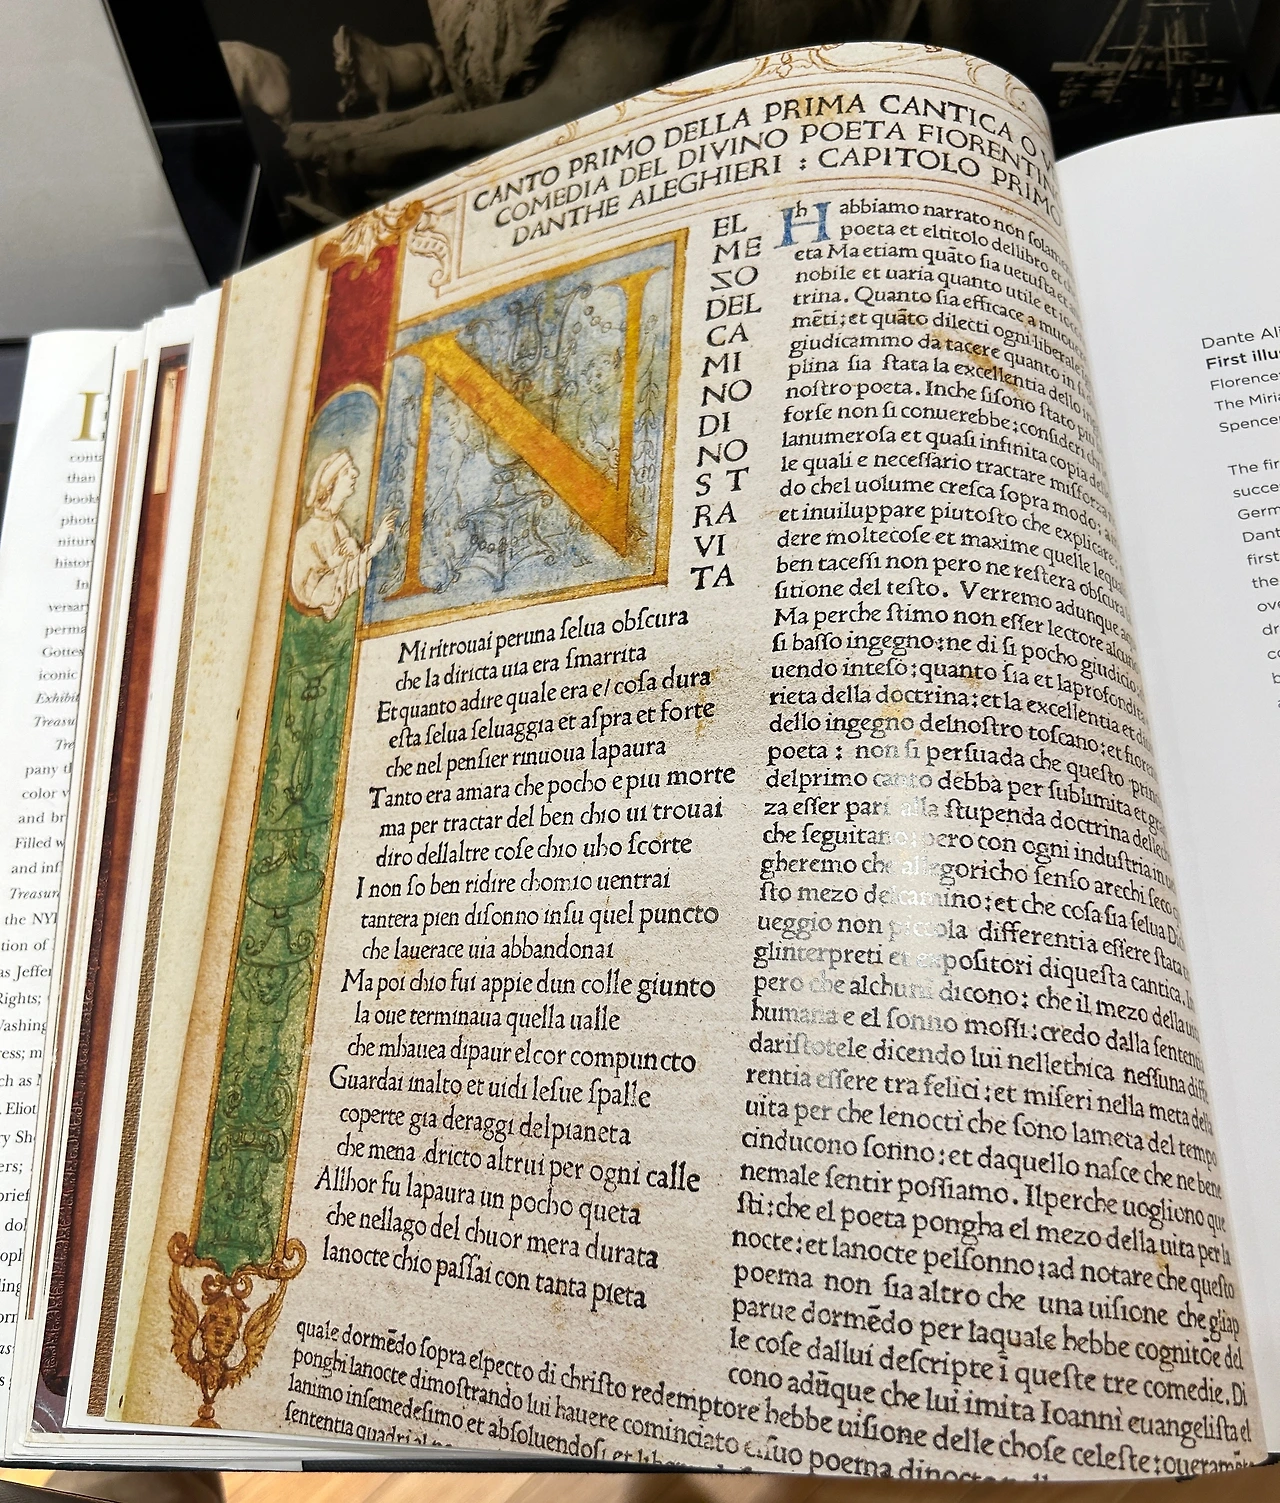 CANTO PRIMO DELLA PRIMA CANTICA O
COMEDIA DEL DIVINO POETA FIORENTIN
DANTHE ALEGHIERI : CAPITOLO PRIMO
N
EL
ME
ZO
DEL
CA
MI
NO
DI
NO
S T
RA
VI
TA
Mi ritrouai peruna ſelua obſcura
che la diricta uia era ſmarrita
Et quanto adire quale era e/ coſa dura
eſta ſelua ſeluaggia et aſpra et forte
che nel penſier rinuoua lapaura
Tanto era amara che pocho e piu morte
ma per tractar del ben chio ui trouai
diro dellaltre coſe chio uho ſcorte
I non ſo ben ridire chomio uentrai
tantera pien diſonno inſu quel puncto
che lauerace uia abbandonai
Ma poi chio fui appie dun colle giunto
la oue terminaua quella ualle
che mhauea dipaur el cor compuncto
Guardai inalto et uidi leſue ſpalle
coperte gia deraggi delpianeta
che mena dricto altrui per ogni calle
Allhor fu lapaura un pocho queta
che nellago del chuor mera durata
lanocte chio paſſai con tanta pieta
h H abbiamo narrato non ſolam
poeta et eltitolo dellibro et
eta Ma etiam quāto ſia uetuſta et
nobile et uaria quanto utile et
trina. Quanto ſia efficace a
mēti: et quāto dilecti ogni liberale
giudicammo da tacere quanto in
plina ſia ſtata la excellentia dello
noſtro poeta. Inche ſiſono ſtato piu
forſe non ſi conuerebbe: conſideri
lanumeroſa et quaſi infinita copia
le quali e neceſſario tractare miſforza
do chel uolume creſca ſopra modo:
et inuiluppare piutoſto che explicare:
dere moltecoſe et maxime quelle
ben taceſſi non pero ne reſtera obſcura
ſitione del teſto. Verremo adunque
Ma perche ſtimo non eſſer lectore alcuno
ſi baſſo ingegno: ne di ſi pocho giudicio
uendo inteſo: quanto ſia et laprofondita
rieta della doctrina: et la excellentia et
dello ingegno delnoſtro toſcano: et
poeta : non ſi perſuada che queſto
delprimo canto debba per ſublimita et
za eſſer pari alla ſtupenda doctrina
che ſeguitano: pero con ogni induſtria
gheremo che allegoricho ſenſo arechi ſeco
ſto mezo delcamino: et che coſa ſia ſelua
ueggio non piccola differentia eſſere ſtata
glinterpreti et expoſitori diqueſta cantica.
pero che alchuni dicono: che il mezo della
humana e el ſonno moſſi: credo dalla
dariſtotele dicendo lui nellethica neſſuna
rentia eſſere tra felici: et miſeri nella meta della
uita per che lenocti che ſono lameta del tempo
cinducono ſonno: et daquello naſce che ne bene
nemale ſentir poſſiamo. Ilperche uogliono que
ſti: che el poeta pongha el mezo della uita per la
nocte: et lanocte pelſonno: ad notare che queſto
poema non ſia altro che una uiſione che
parue dormēdo per laquale hebbe cognitōe del
le coſe dallui deſcripte ī queſte tre comedie. Di
cono adūque che lui imita Ioanni euangeliſta el
quale dormēdo ſopra elpecto di chriſto redemptore hebbe uiſione delle choſe celeſte: oueramēte
ponghi lanocte dimoſtrando lui hauere cominciato elſuo poema
lanimo inſemedeſimo et abſoluendoſi et
ſententia
Dante
First
Florence
The
Spencer
The
Germ
first
the
conta
than
book
photo
nitur
histor
In
versar
perma
Gottes
iconic
Exhibi
Treasu
Tre
pany
color
and br
Filled
and inf
Treasur
the NY
tion of
as Jeffer
Rights;
Washing
Eliot
brief